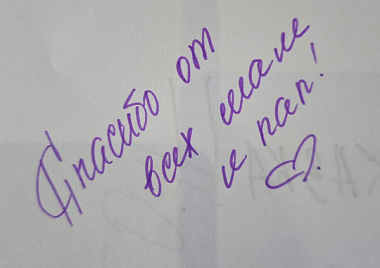 Спасибо от
всех мам
и пап!